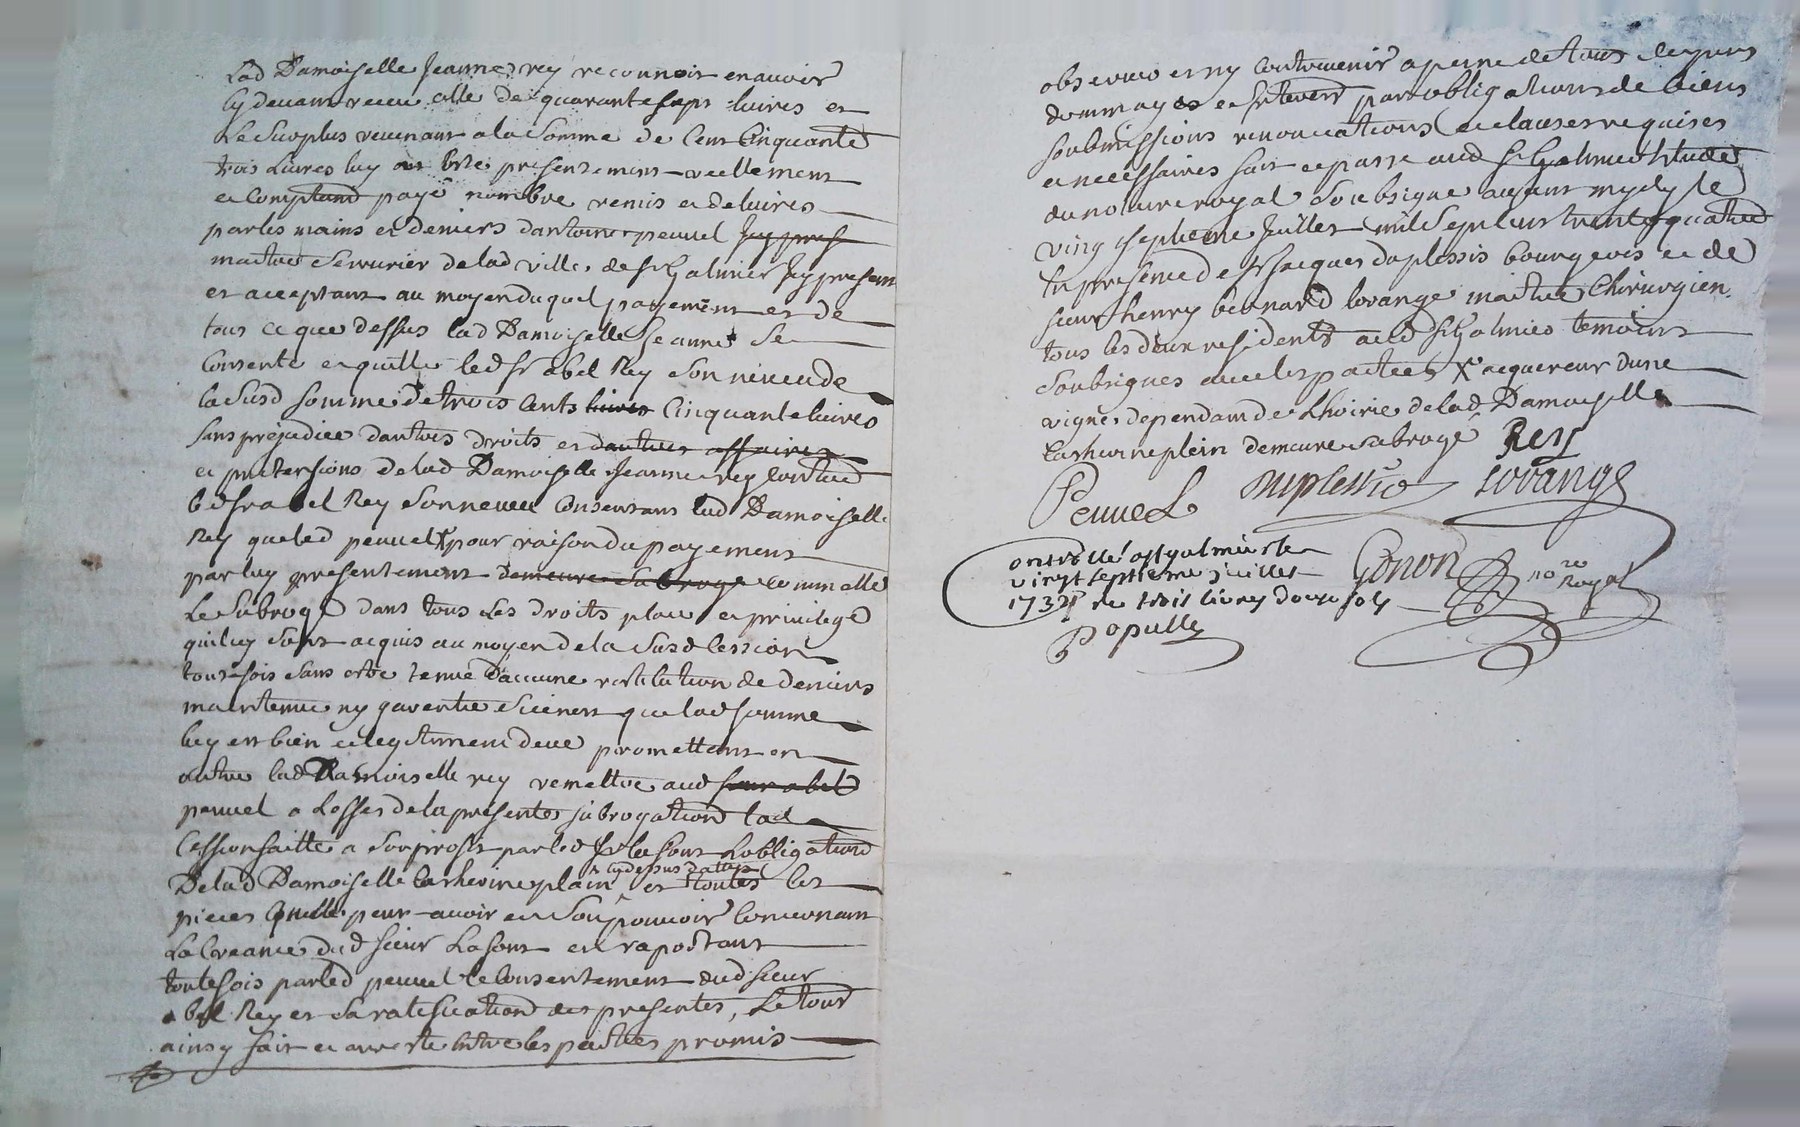 Lad Damoiselle Jeanne rey reconnoit en avoir
cy devant receu celle de quarante sept livres et
le surplus revenant a la somme de Cent Cinquante
trois Livres luy presentement reellement
et Comptand payé nombre remis et delivres
par les mains et deniers dantoine peuvel
maitre Serrurier de lad ville de St Galmier Jcy present
et acceptant au moyen duquel payement et de
tout ce que dessus lad Damoiselle Jeanne Se
Contente et quitte led Sr abel Rey Son neveu de
la Susd somme de trois Cents livres Cinquante livres
sans prejudice dautres droits et dautres affaires
et pretensions de lad Damoiselle Jeanne rey contre
led Sr abel Rey Son neveu Consentant lad Damoiselle
Rey que led peuvel x pour raison du payement
par luy presentement demeure Subrogé comme elle
Le Subroge dans tous Les droits place et privilege
qui luy Sont acquis au moyen de la Susd Cession
toutefois sans estre tenue d'aucune restitution de deniers
maintenue ny garentie Sinon que lad somme
luy est bien et legitimement deue promettant en
outre lad Damoiselle rey remettre aud sieur abel
peuvel a Leffet de la presente subrogation lad
Cession faitte a Son profit par led Sr lafont Lobligation
x cy dessus datté
De lad Damoiselle Catherine plain et toutes les
pieces qu'elle peut avoir en Son pouvoir Concernant
La Creance dud sieur Lafont en raportant
toutefois par led peuvel le Consentement dud sieur
abel Rey et Sa ratification des presentes, Le tout
ainsy fait et arreste Entre les parties promis
observer et ny Contrevenir a peine de tous depens
dommages et Interets par obligations de biens
soubmissions renonciations et clauses requises
et necessaires fait et passé aud St Galmier Etude
du notaire royal Soubsigné avant mydy le
vingt septieme Juillet mil Sept cent trente quatre
En presence de Sr Jacques duplessis bourgeois et de
sieur henry bernard lovange maitre Chirurgien
tous les deux residents aud St Galmier temoins
Soubsignes avec les parties x acquereur dune
vigne dependant de Lhoirie de lad Damoiselle
Catherine plein demeure subrogé Rey
Peuvel Duplessis Lovange
Controllé a St galmier le
vingt septieme juillet Gonon nore Royal
1734 re trois livres douze sols
Populle